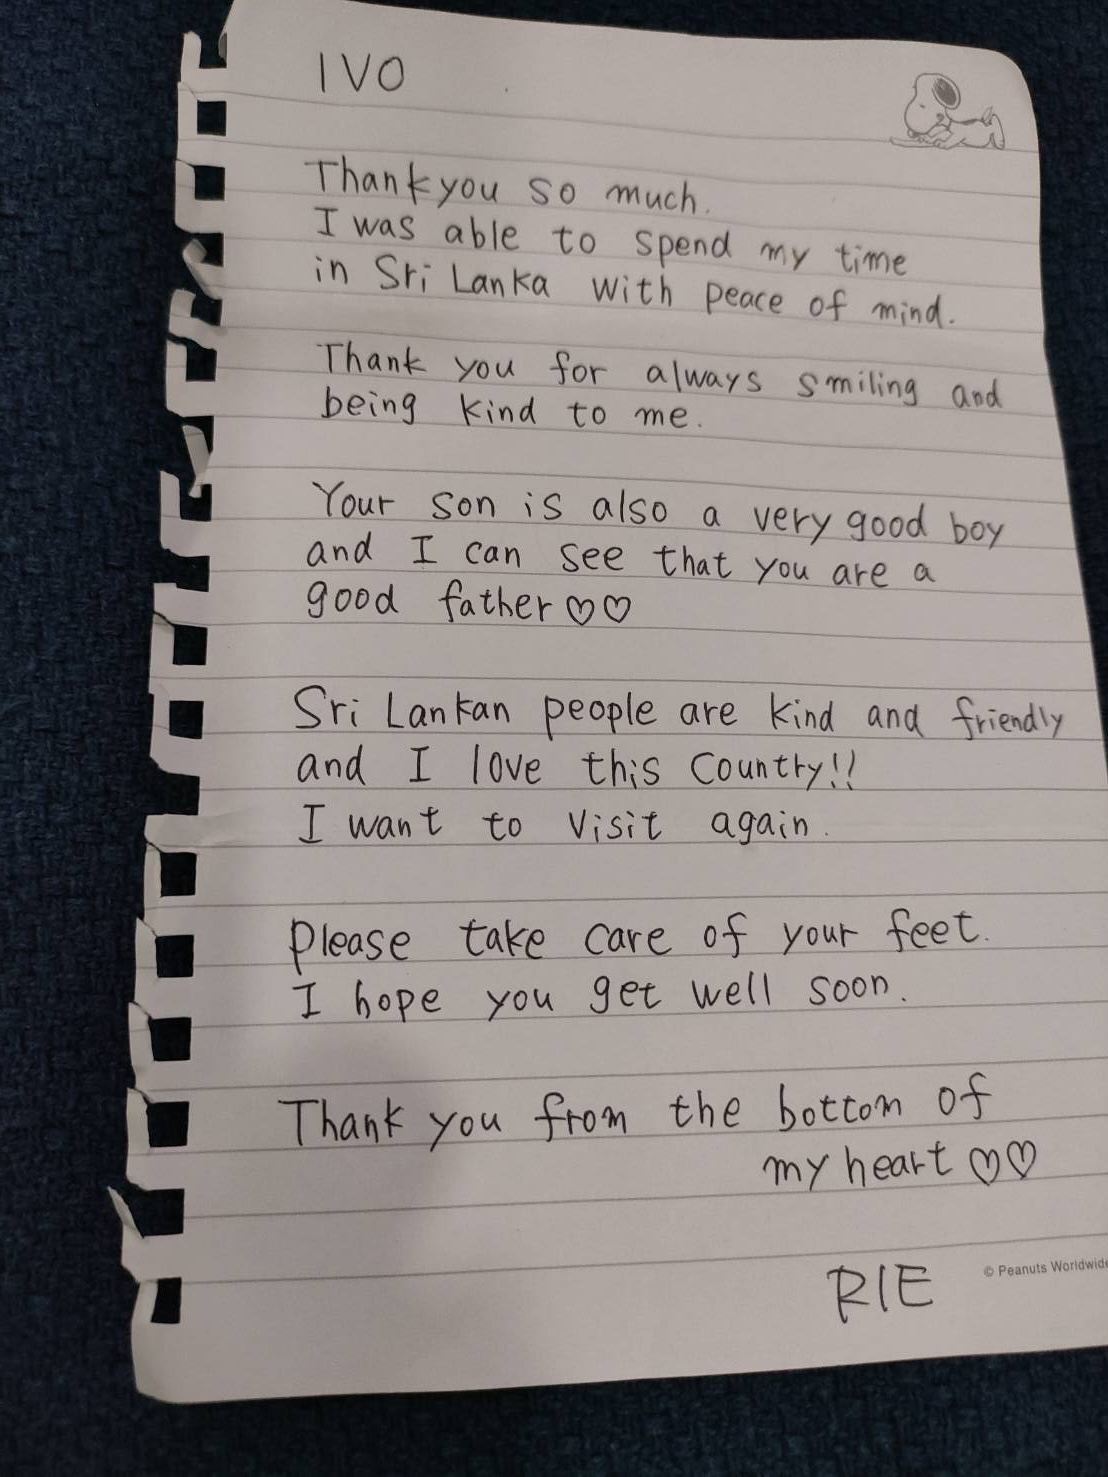 IVO
Thankyou so much.
I was able to spend my time
in Sri Lanka with peace of mind.
Thank you for always smiling and
being kind to me.
Your son is also a very good boy
and I can see that you are a
good father♡♡
Sri Lankan people are kind and friendly
and I love this country!!
I want to visit again.
Please take care of your feet.
I hope you get well soon.
Thank you from the bottom of
my heart ♡♡
RIE
© Peanuts Worldwide